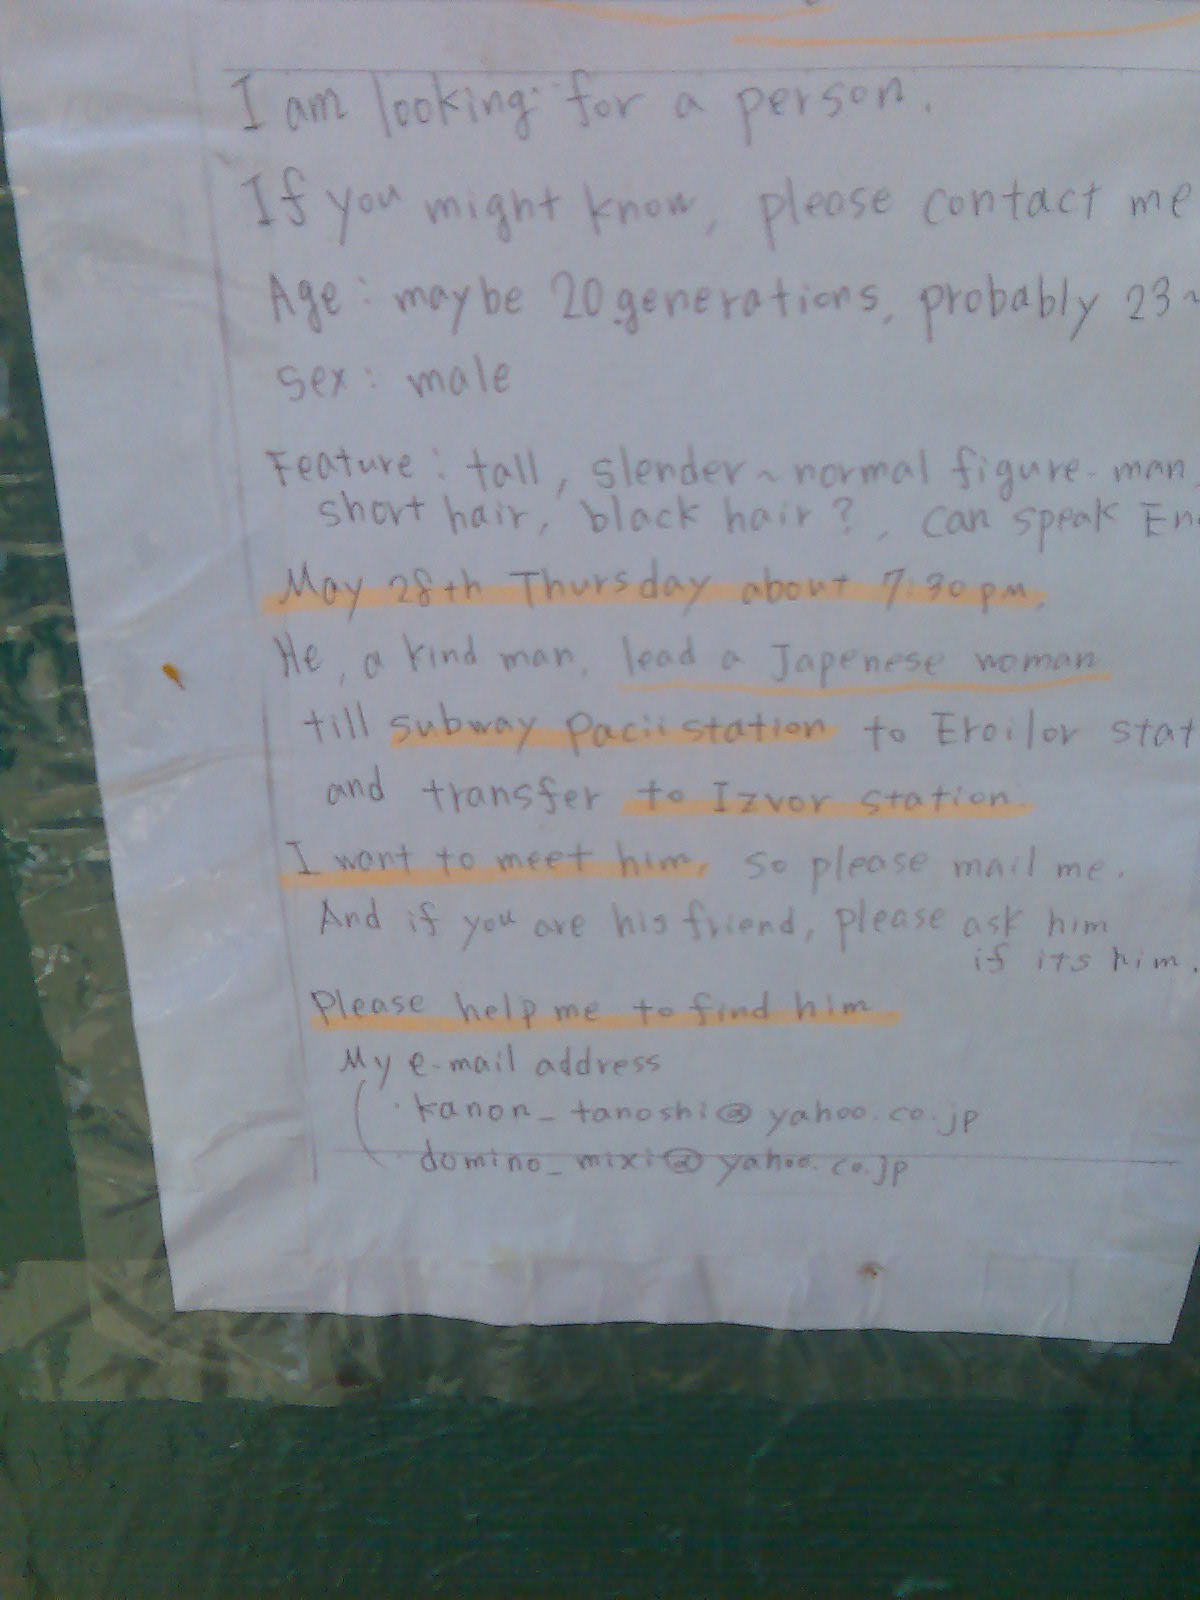 I am looking for a person.
If you might know, please contact me
Age : maybe 20 generations, probably 23~
sex : male
Feature : tall, slender ~ normal figure-man,
short hair, black hair ?, can speak En
May 28th Thursday about 7:30 pm,
He, a kind man, lead a Japenese woman
till subway Pacii station to Eroilor stat
and transfer to Izvor station.
I want to meet him, so please mail me.
And if you are his friend, please ask him
if its him.
Please help me to find him
My e-mail address
· kanon_tanoshi@yahoo.co.jp
· domino_mixi@yahoo.co.jp